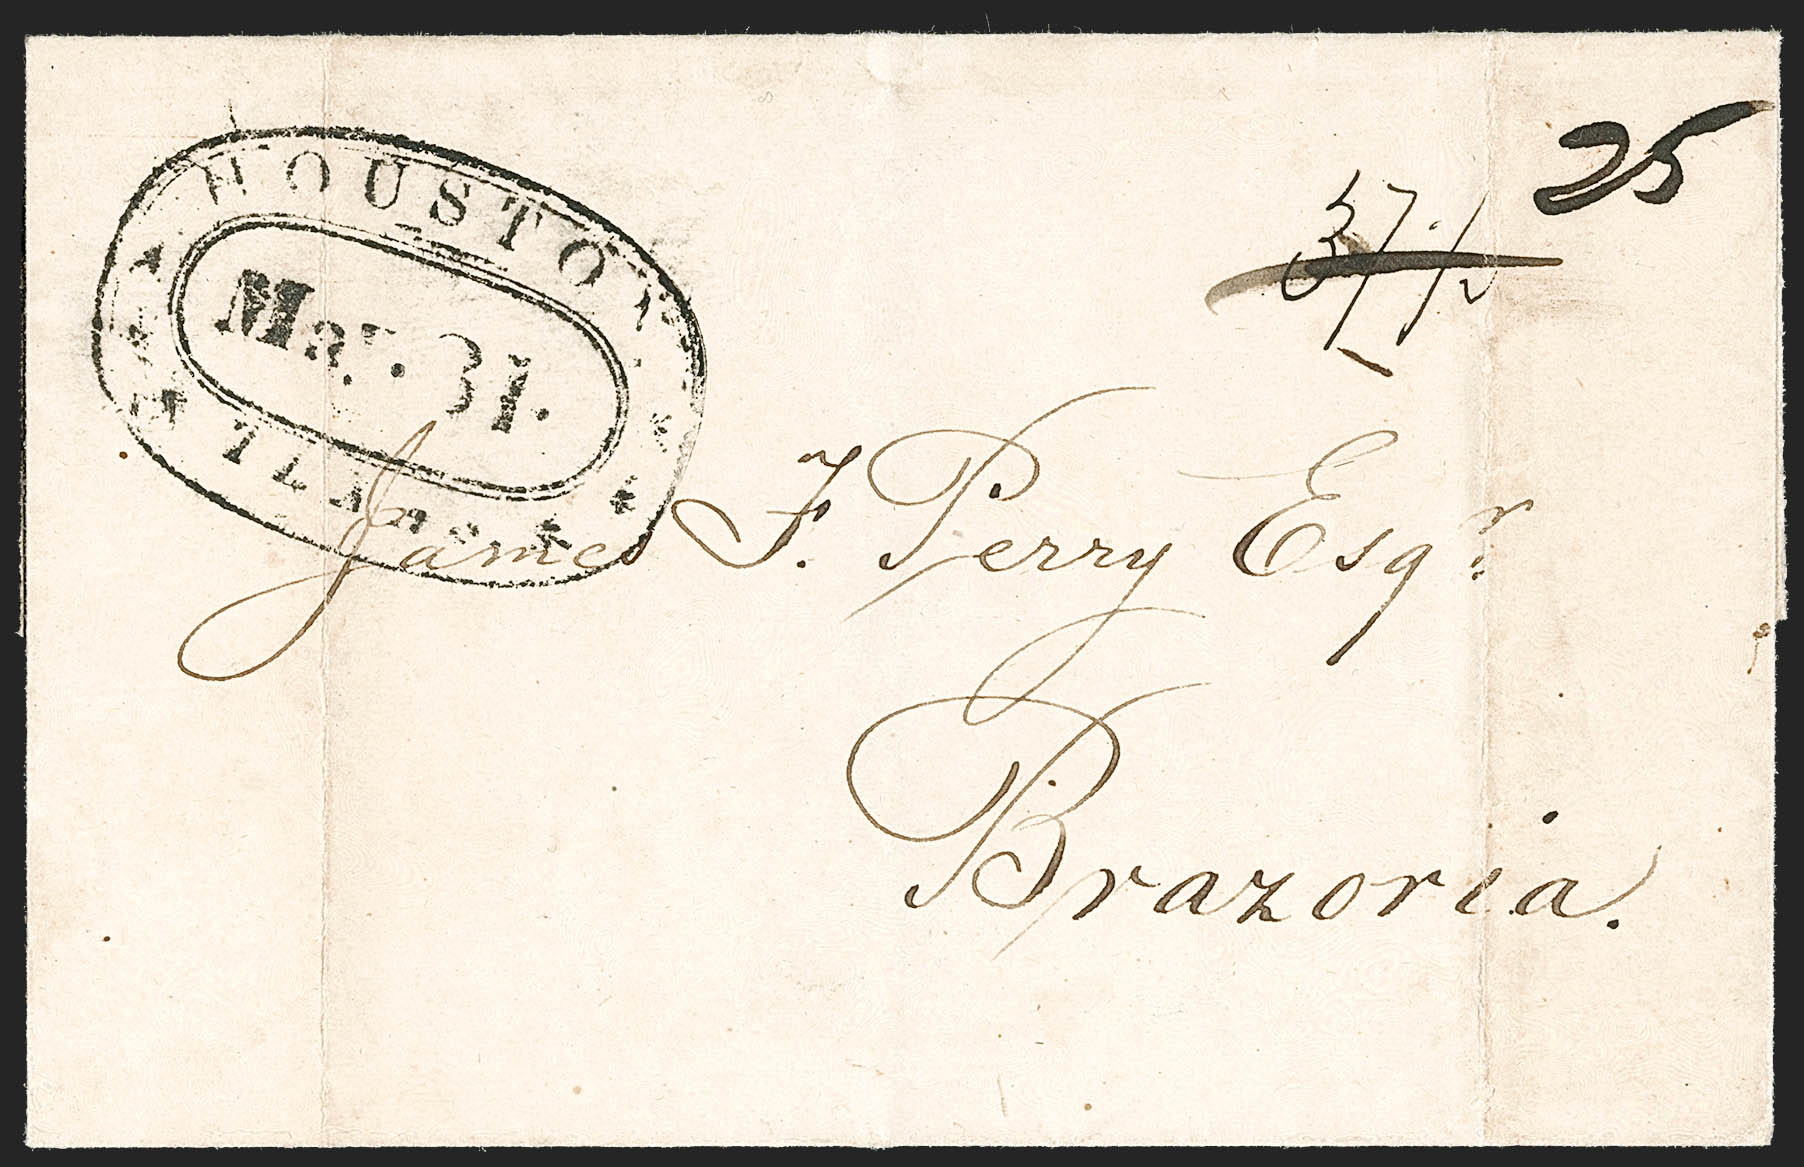 HOUSTON
Mar. 31.
25
37.½
James F. Perry Esqr
Brazoria.